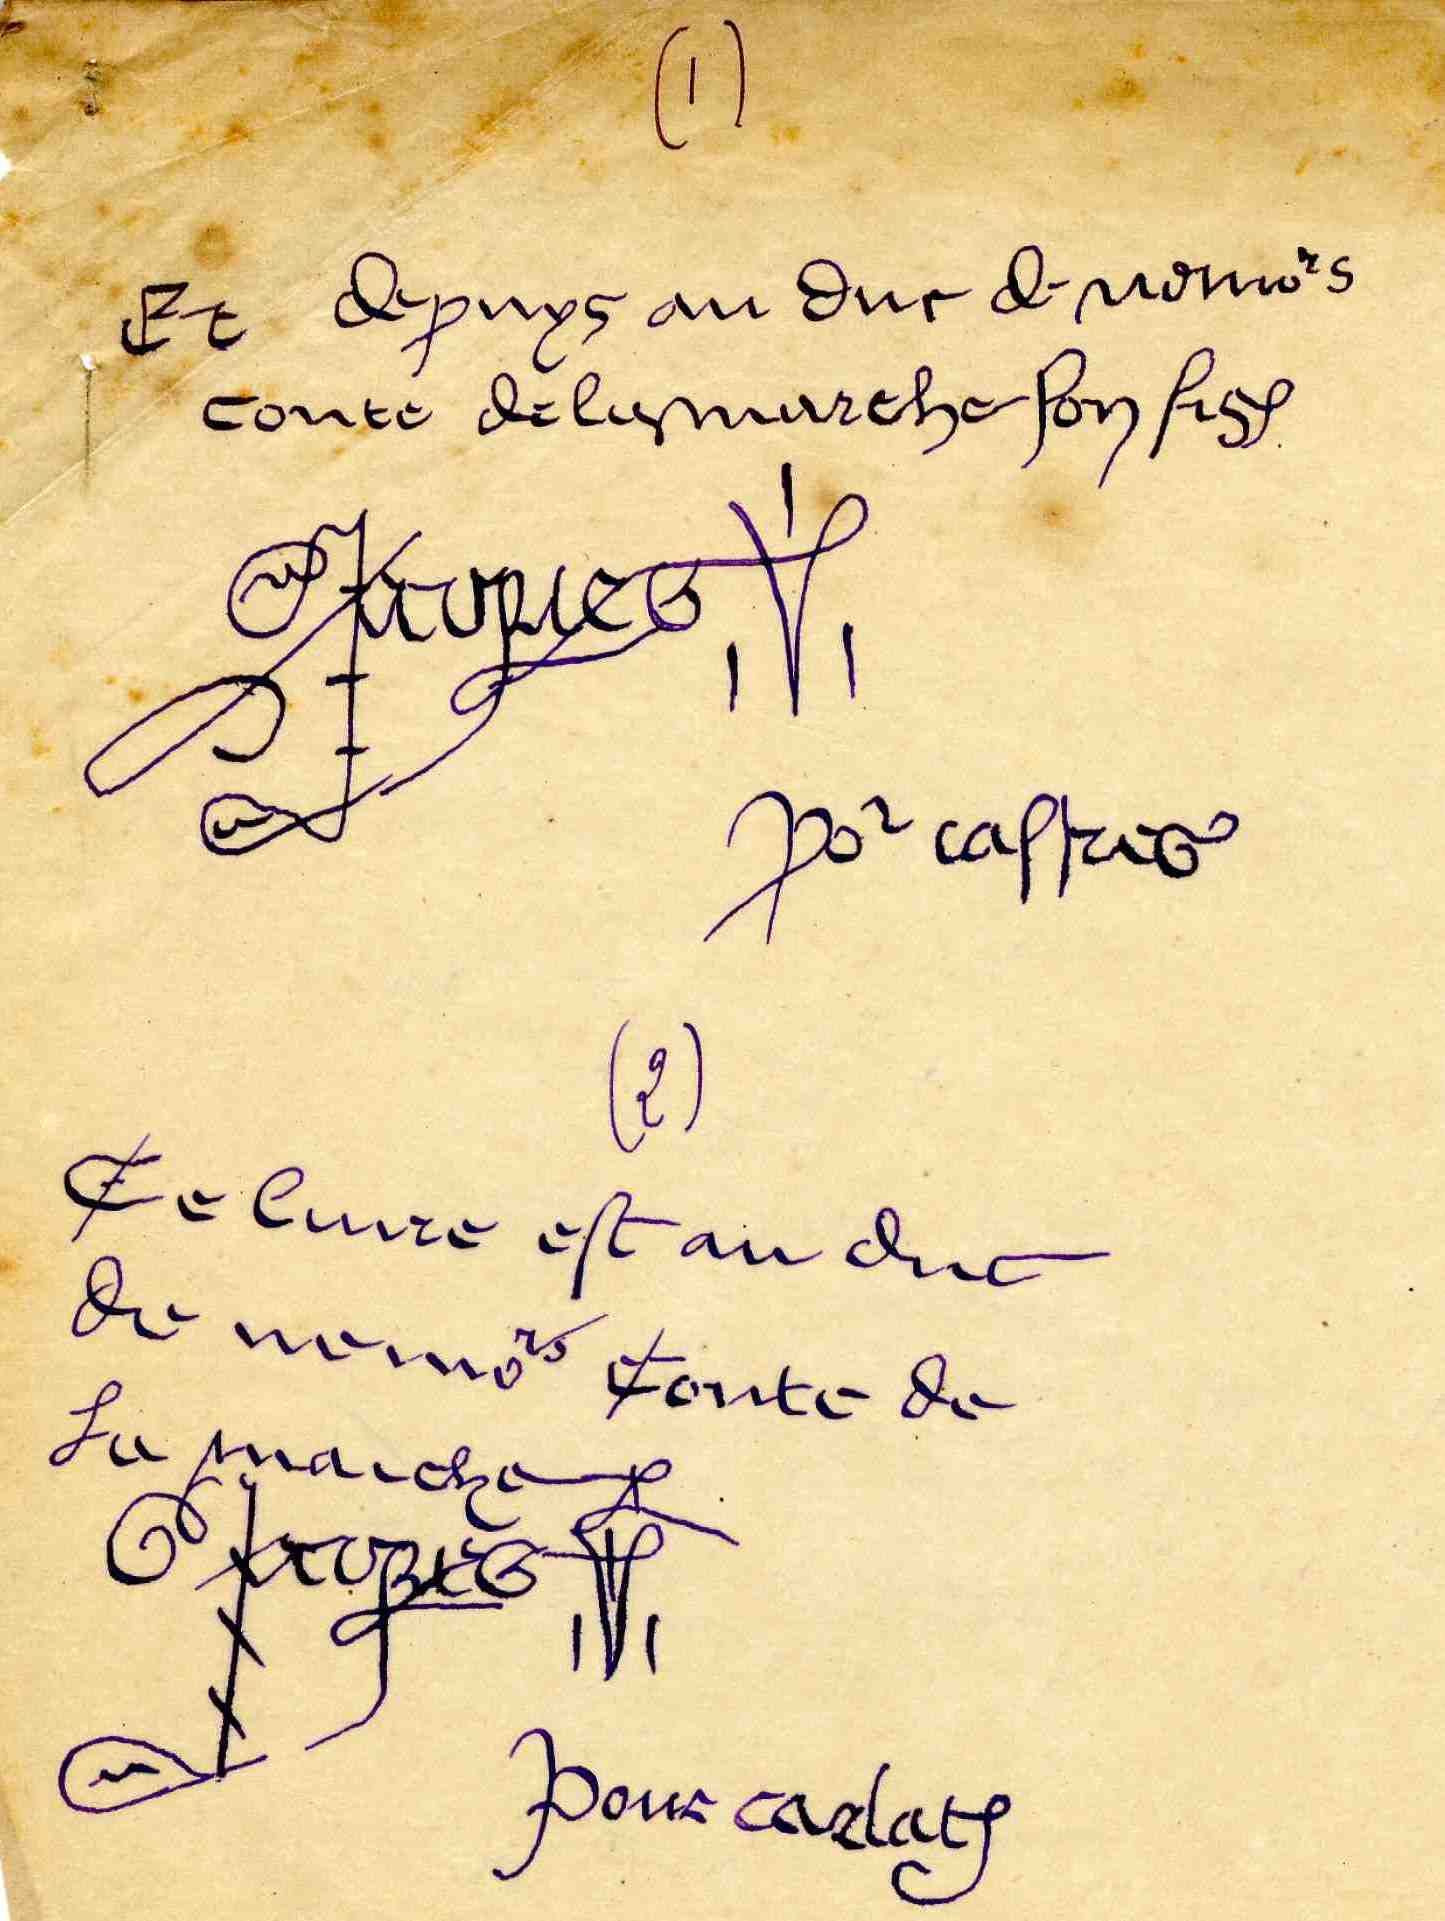 (1)
Et depuys au duc de nemors
conte delamarche son filz
Jacques
por castres
(2)
Ce livre est au duc
de nemors Conte de
La marche
Jacques
pour carlat